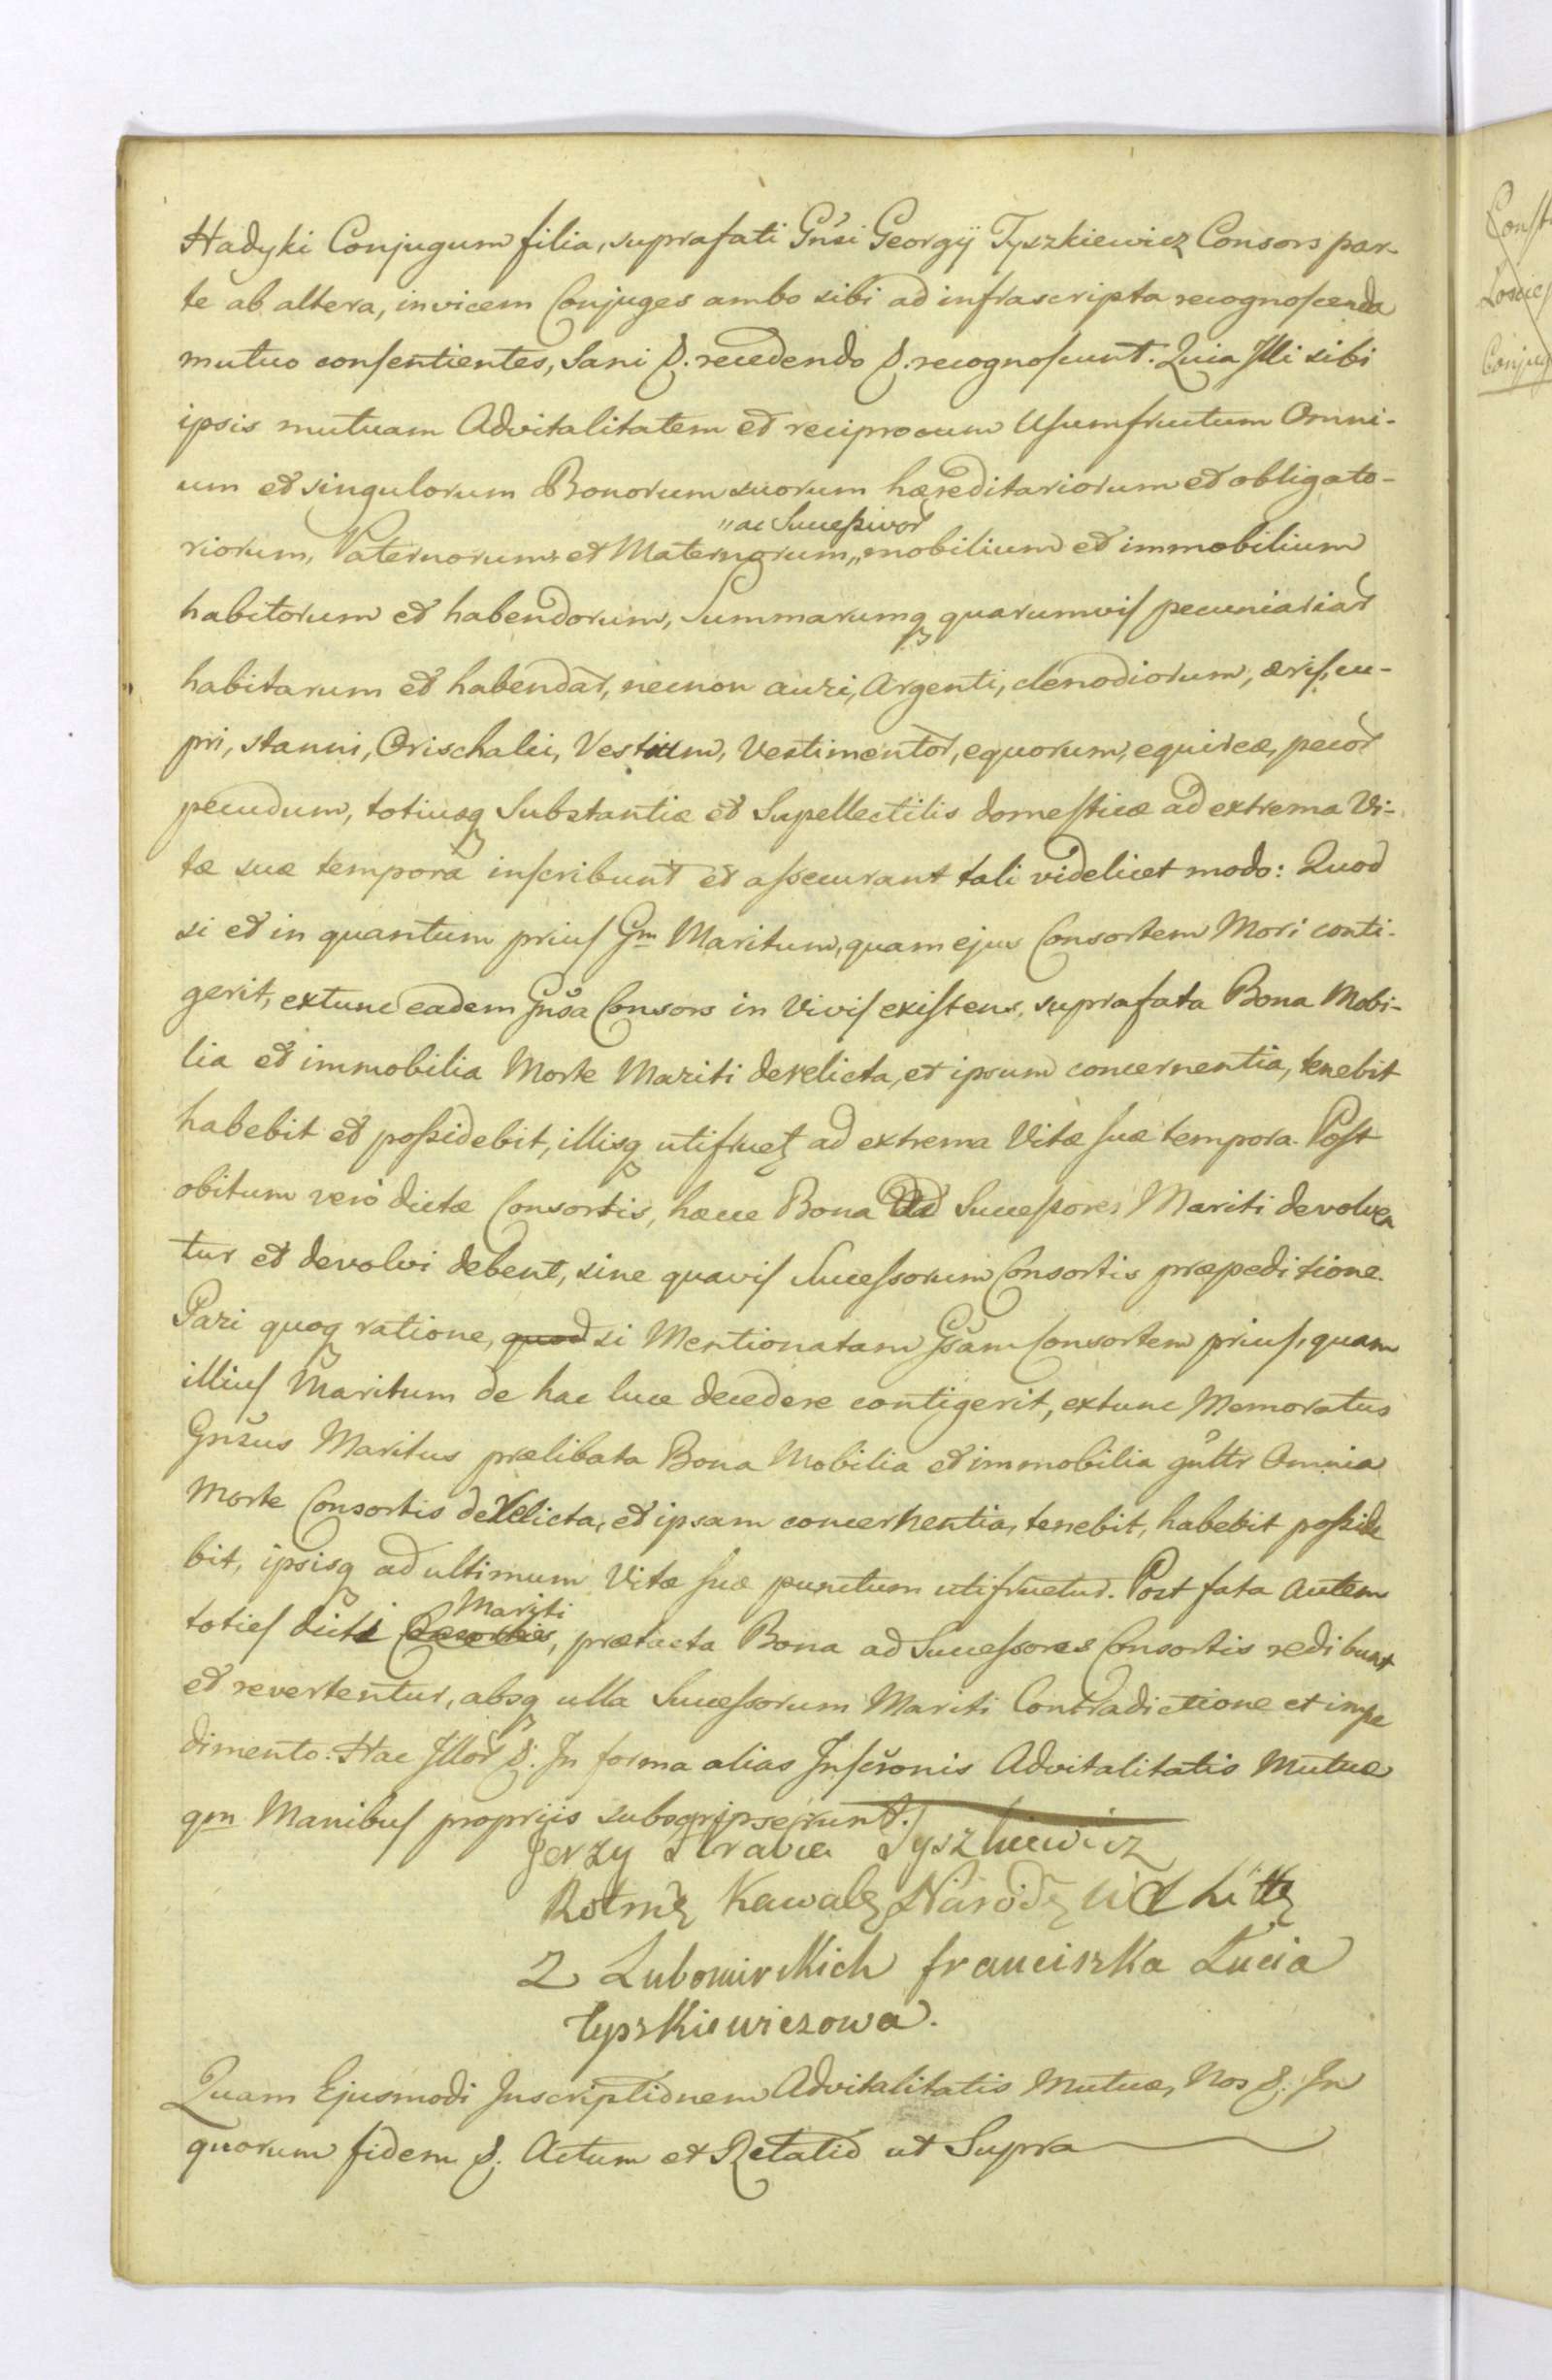 Hadyki Conjugum filia, suprafati Gnsi Georgÿ Tyszkiewicz Consors par-
te ab altera, invicem Conjuges ambo sibi ad infrascripta recognoscenda
mutuo consentientes, Sani &. recedendo &. recognoscunt. Quia Illi sibi
ipsis mutuam Advitalitatem et reciprocum Usumfructum Omni-
um et singulorum Bonorum suorum hæreditariorum et obligato-
"ac Successivor
riorum, Paternorum et Maternorum,, mobilium et immobilium
habitorum et habendorum, Summarumq quarumvis pecuniariar
habitarum et habendar, necnon auri, Argenti, clenodiorum, æris, cu-
pri, stanni, Orischalci, Vestium, Vestimentor, equorum, equireæ, pecor
pecudum, totiusq Substantiæ et Supellectilis domesticæ ad extrema Vi-
tæ suæ tempora inscribunt et assecurant tali videlicet modo: Quod
si et in quantum prius Gm Maritum, quam ejus Consortem Mori conti-
gerit, extunc eadem Gnsa Consors in Vivis existens, suprafata Bona Mobi-
lia et immobilia Morte Mariti derelicta, et ipsum concernentia, tenebit
habebit et possidebit, illisq utifruet ad extrema Vitæ suæ tempora. Post
obitum vero dictæ Consortis, hæcce Bona Ad Successores Mariti devolven
tur et devolvi debent, sine quavis Successorum Consortis præpeditione.
Pari quoq ratione, quod si Mentionatam Gsam Consortem prius, quam
illius Maritum de hac luce decedere contigerit, extunc Memoratus
Gnsus Maritus prælibata Bona Mobilia et immobilia gnltr Omnia
Morte Consortis derelicta, et ipsam concernentia, tenebit, habebit posside
bit, ipsisq ad ultimum Vitæ suæ punctum utifruetur. Post fata autem
Mariti
toties dicti Consortis, prætacta Bona ad Successores Consortis redibunt
et revertentur, absq ulla Successorum Mariti Contradictione et impe
dimento. Hac Illor &. In forma alias Inscronis Advitalitatis Mutuæ
qm Manibus proprijs subscripserunt.
Jerzy Hrabia Tyszkiewicz
Rotm Kawal Narod W X Litt
Z Lubomirskich franciszka Łucia
Tyszkiewiczowa.
Quam Ejusmodi Inscriptionem Advitalitatis Mutuæ, Nos &. In
quorum fidem &. Actum et Relatio ut Supra
Const
Łosie
Conjug